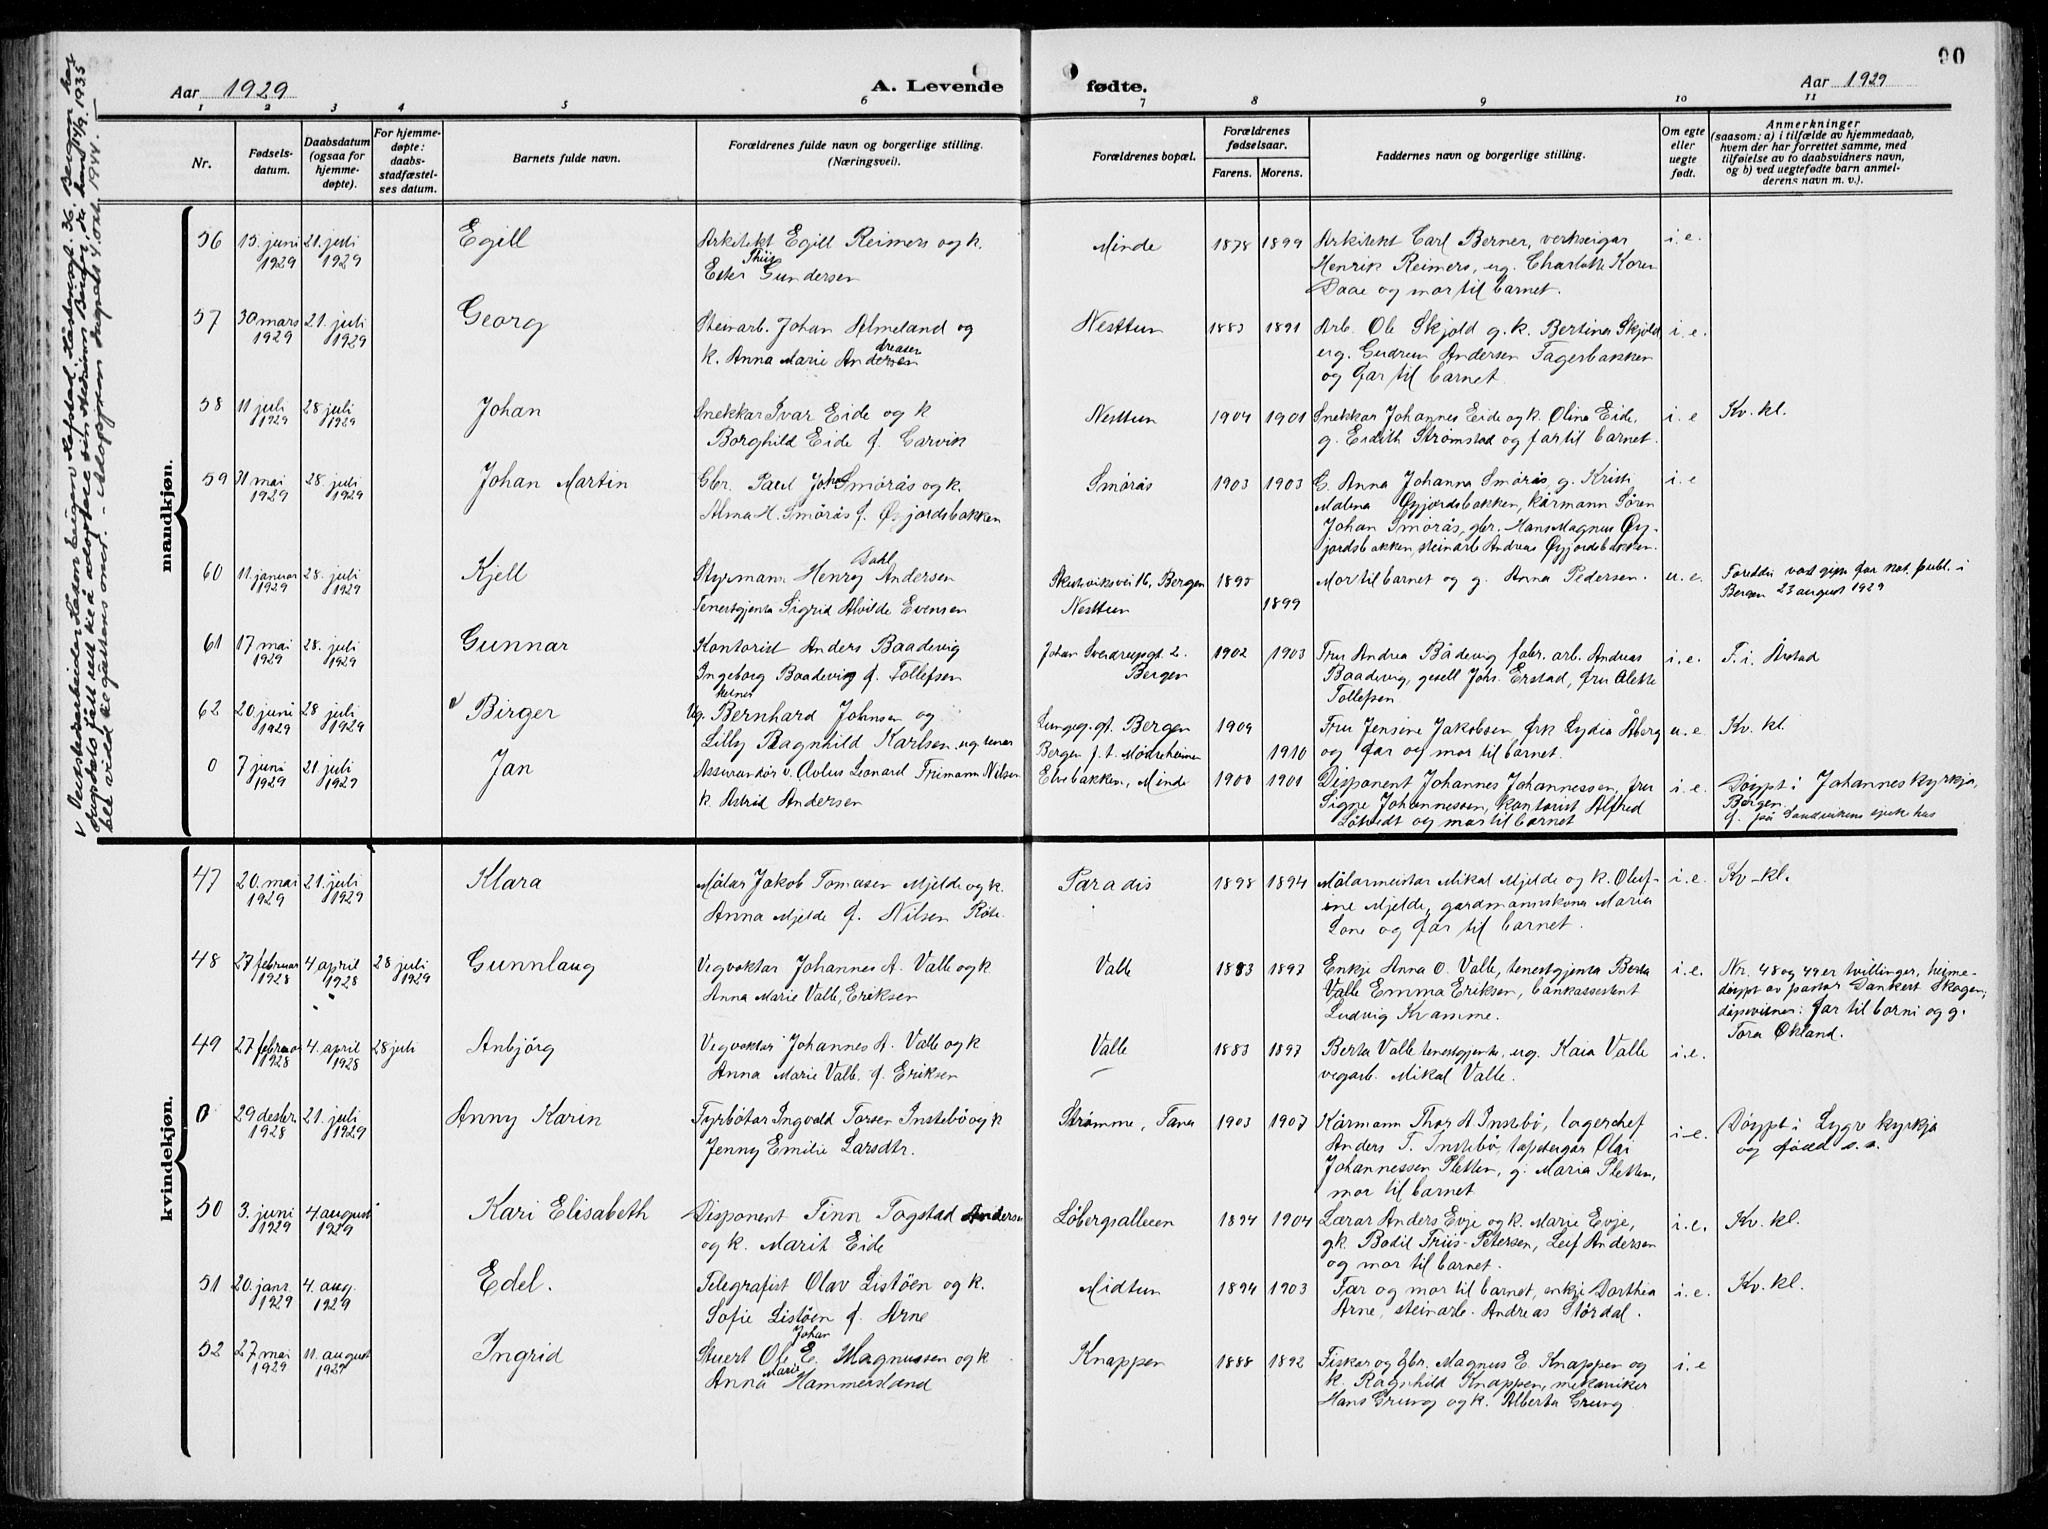 90
Aar 1929
A. Levende
fødte.
Aar 1929
1 2 3 4 5 6 7 8 9 10 11
Nr.
Fødsels-
datum.
Daabsdatum
(ogsaa for
hjemme-
døpte).
For hjemme-
døpte:
daabs-
stadfæstel-
ses datum.
Barnets fulde navn.
Forældrenes fulde navn og borgerlige stilling.
(Næringsvei).
Forældrenes bopæl.
Forældrenes
fødselsaar.
Farens. Morens.
Faddernes navn og borgerlige stilling.
Om egte
eller
uegte
født.
Anmerkninger
(saasom: a) i tilfælde av hjemmedaab,
hvem der har forrettet samme, med
tilføielse av to daabsvidners navn,
og b) ved uegtefødte barn anmel-
derens navn m. v.).
mandkjøn.
56 15. juni 1929 21. juli 1929 Egill
Arkitekt Egill Reimers og k.
Ester Gundersen
Minde 1878 1899
Arkitekt Carl Berner, verkseigar
Henrik Reimers, ug. Charlotte Koren
Daae og mor til barnet.
i. e.
57 30 mars 1929 21. juli 1929 Georg
Steinarb. Johan Almeland og
k. Anna Marie Andersen
dreasen
Nesttun 1883 1891
Arb. Ole Skjold g. k. Bertina Skjold
ug. Gudrun Andersen Fagerbakken
og far til barnet.
i. e.
58 11 juli 1929 28 juli 1929 Johan
Snekkar Ivar Eide og k
Borghild Eide f. Larvik
Nesttun 1904 1901
Snekkar Johannes Eide og k. Oline Eide,
g. Eidith Strømstad og far til barnet.
i. e Kv. kl.
59 31 mai 1929 28. juli 1929 Johan Martin
Gbr. Paul Johan Smörås og k.
Alma H. Smörås f. Øyjordsbakken
Smörås 1903 1903
G. Anna Johanna Smörås, g. Kristi
Malena Øyjordsbakken, kårmann Sören
Johan Smörås, gbr. Hans Magnus Øy-
jordsbakken, steinarb Andreas Øyjordsbakken.
i. e
60 11. januar 1929 28. juli 1929 Kjell
Styrmann Henry Dahl Andersen
Tenestgjenta Sigrid Alvilde Evensen
Skuteviksvei 16, Bergen
Nesttun
1899
Mor til barnet og g. Anna Pedersen.
u. e.
Foreldri vart gift for not. publ. i
Bergen 23 august 1929
61 17 mai 1929 28. juli 1929 Gunnar
Kontorist Anders Baadevig
Ingeborg Baadevig f. Tollefsen
Johan Sverdrupsgt 2.
Bergen
1902 1903
Fru Andrea Bådevig fabr. arb. Andreas
Baadevig, gesell Johs. Erstad, fru Alette
Tollefsen
i. e. F. i. Årstad
62 20. juni 1929 28 juli 1929 v Birger
Bernhard Johnsen og
Lilly Ragnhild Karlsen
Lungeg. gt. Bergen
Bergen f. t. Mödreheimen
1909 1910
Fru Jensine Jakobsen, frk Lydia Åberg
og far og mor til barnet.
u. e. Kv. kl.
0 7 juni 1929 21. juli 1929 Jan
Assurandör v. Aolus Leonard Frimann Nilsen
k. Astrid Andersen
Elvebakken, Minde 1900 1901
Disponent Johannes Johannessen, fru
Signe Johannessen, kontorist Alfred
Låstvedt og mor til barnet
i. e.
Döypt i Johannes kyrkja,
Bergen.
f. på Sandvikens sjukehus
kvindekjøn.
47 20. mai 1929 21. juli 1929 Klara
Målar Jakob Tomasen Mjelde og k.
Anna Mjelde f. Nilsen
Paradis 1898 1894
Målarmeistar Mikal Mjelde og k. Oluf-
ine Mjelde, gardmannskona Maria
Lone og far til barnet.
i. e. Kv-kl.
48 27 februar 1928 4 april 1928 28 juli 1929 Gunnlaug
Vegvoktar Johannes A. Valle og k
Anna Marie Valle, Eriksen
Valle 1883 1897
Enkje Anna O. Valle, tenestgjenta Berta
Valle Emma Eriksen, bankassistent
Ludvig Kramme.
i. e.
Nr. 48 og 49 er tvillinger, heime-
döypt av pastor Dankert Skagen,
dåpsvitner: far til borni og g.
Tora Økland.
49 27 februar 1928 4. april 1928 28 juli Anbjörg
Vegvoktar Johannes A. Valle og k
Anna Marie Valle f. Eriksen
Valle 1883 1897
Berta Valle tenestgjenta, ug. Kaia Valle
vegarb. Mikal Valle.
i. e.
0 29 desbr. 1928 21. juli 1929 Anny Karin
Fyrbötar Ingvald Torsen Instebö og k
Jenny Emilie Larsdtr.
Strömme, Fana 1903 1907
Kårmann Thor A Instebö, lagerchef
Anders T. Instebö, tapetsergar Olai
Johannessen Pletten, g. Maria Pletten,
mor til barnet
i. e.
Döypt i Lygre kyrkja
og född s. s.
50 3. juni 1929 4. august 1929 Kari Elisabeth
Disponent Finn Fogstad Andersen
og k. Marit Eide
Löbergsalleen 1894 1904
Lærar Anders Evje og k. Marie Evje,
g k. Bodil Friis-Petersen, Leif Andersen
og mor til barnet.
i. e. Kv. kl.
51 20. janr. 1929 4. aug. 1929 Edel.
Telegrafist Olav Listöen og k.
Sofie Listöen f. Arne
Midtun 1894 1903
Far og mor til barnet, enkje Dorthea
Arne, steinarb. Andreas Stördal.
i. e. Kv. kl.
52 27 mai 1929 11. august 1929 Ingrid
Stuert Ole Johan E. Magnussen og k
Anna Marie Hammersland
Knappen 1888 1892
Fiskar og gbr. Magnus E. Knappen og
k. Ragnhild Knappen, mekaniker
Hans Grung og k. Alberta Grung.
i. e